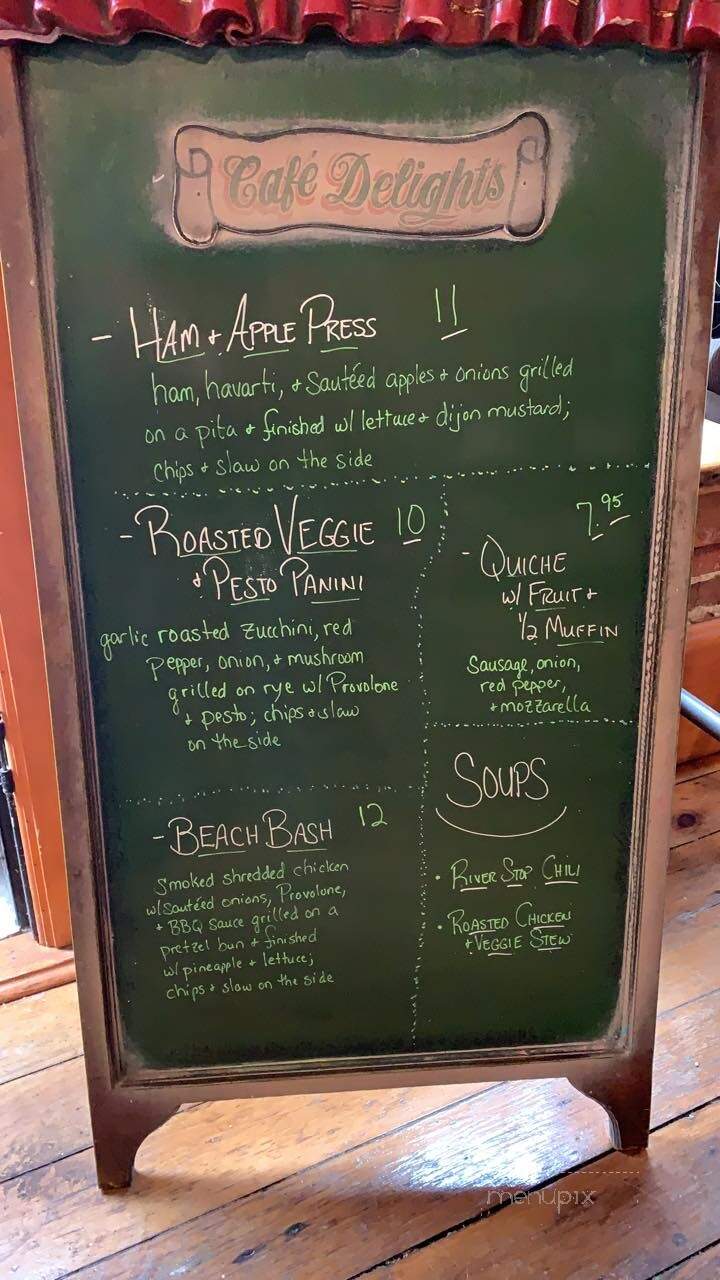 Café Delights
- HAM + APPLE PRESS 11
ham, havarti, + sautéed apples + onions grilled
on a pita + finished w/ lettuce + dijon mustard;
chips + slaw on the side
- ROASTED VEGGIE 10
+ PESTO PANINI
garlic roasted zucchini, red
pepper, onion, + mushroom
grilled on rye w/ Provolone
+ pesto; chips + slaw
on the side
7.95
- QUICHE
w/ FRUIT +
1/2 MUFFIN
Sausage, onion,
red pepper,
+ mozzarella
- BEACH BASH 12
Smoked shredded chicken
w/ sautéed onions, Provolone,
+ BBQ sauce grilled on a
pretzel bun + finished
w/ pineapple + lettuce;
chips + slaw on the side
SOUPS
• RIVER STOP CHILI
• ROASTED CHICKEN
+ VEGGIE STEW
menupix